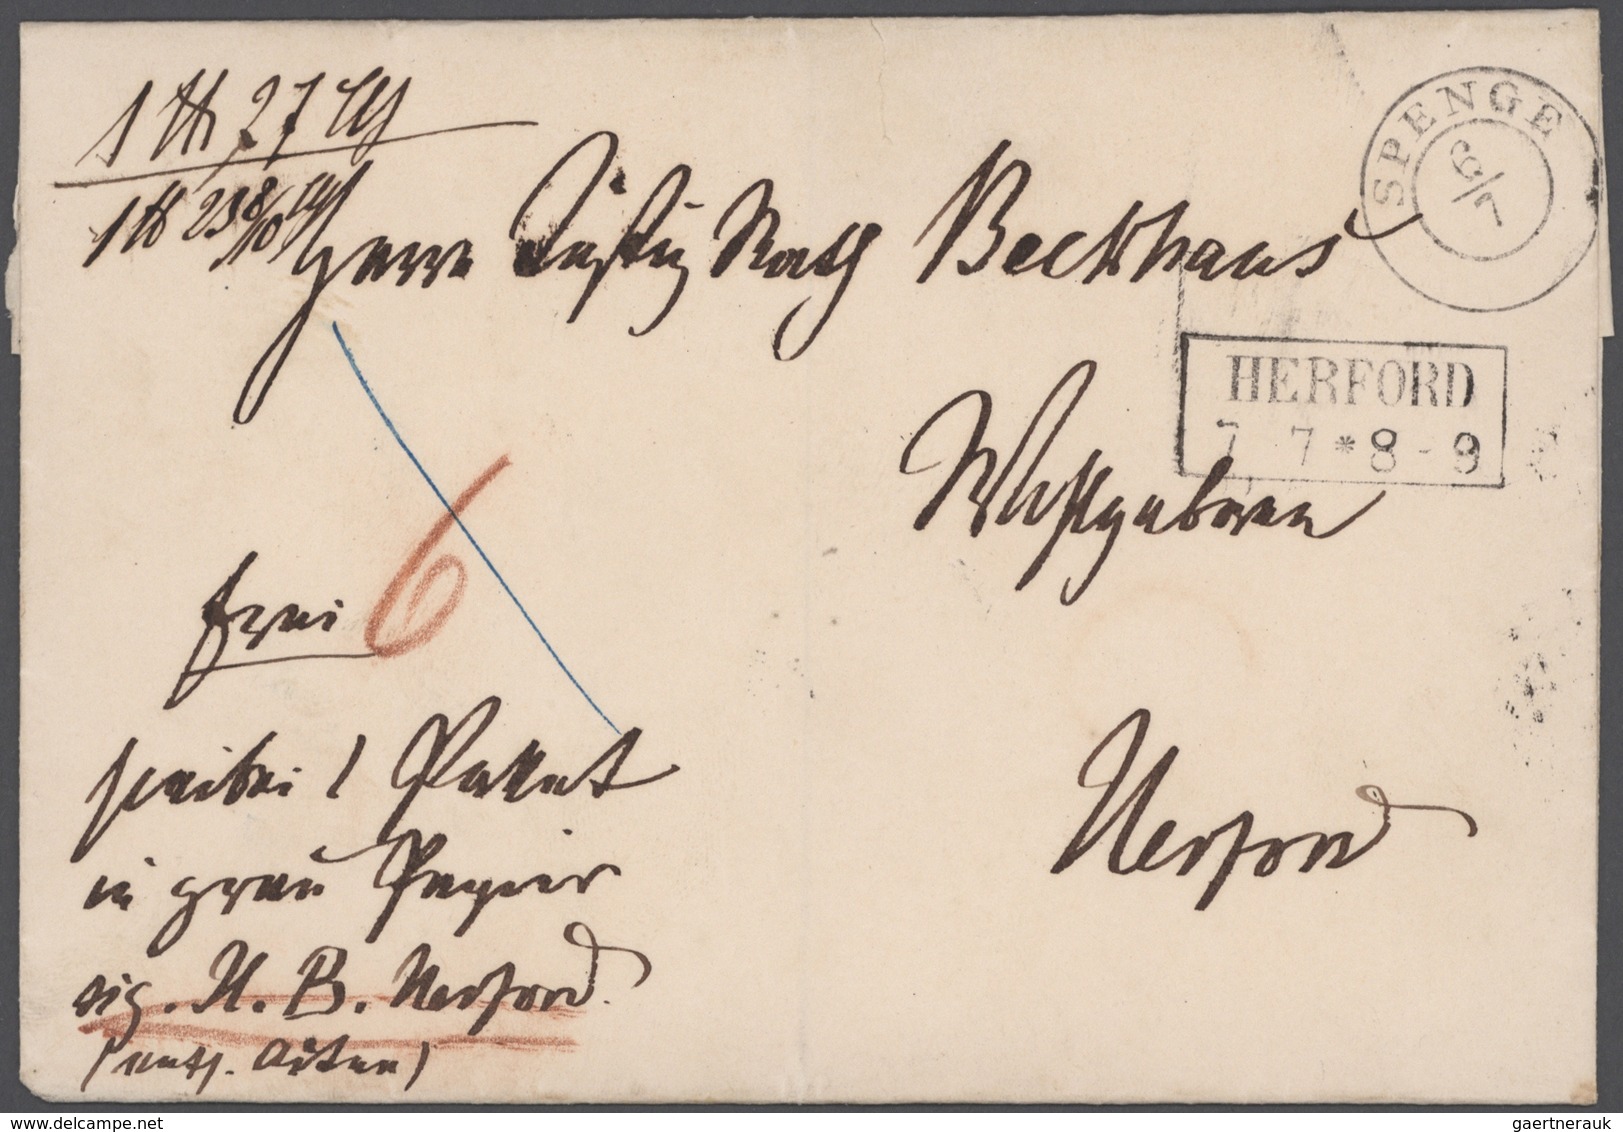 1 ℔ 27 Lth
1 ℔ 23 8/10 Lth
SPENGE
6/7
Herrn Justiz Rath Beckhaus
HERFORD
7 7 * 8 - 9
Wohlgeboren
frei 6
hierbei 1 Paket
Herford
in grau Papier
sig. H. B. Herford.
(enth. Akten)
delcampe.net
gaertnerauk